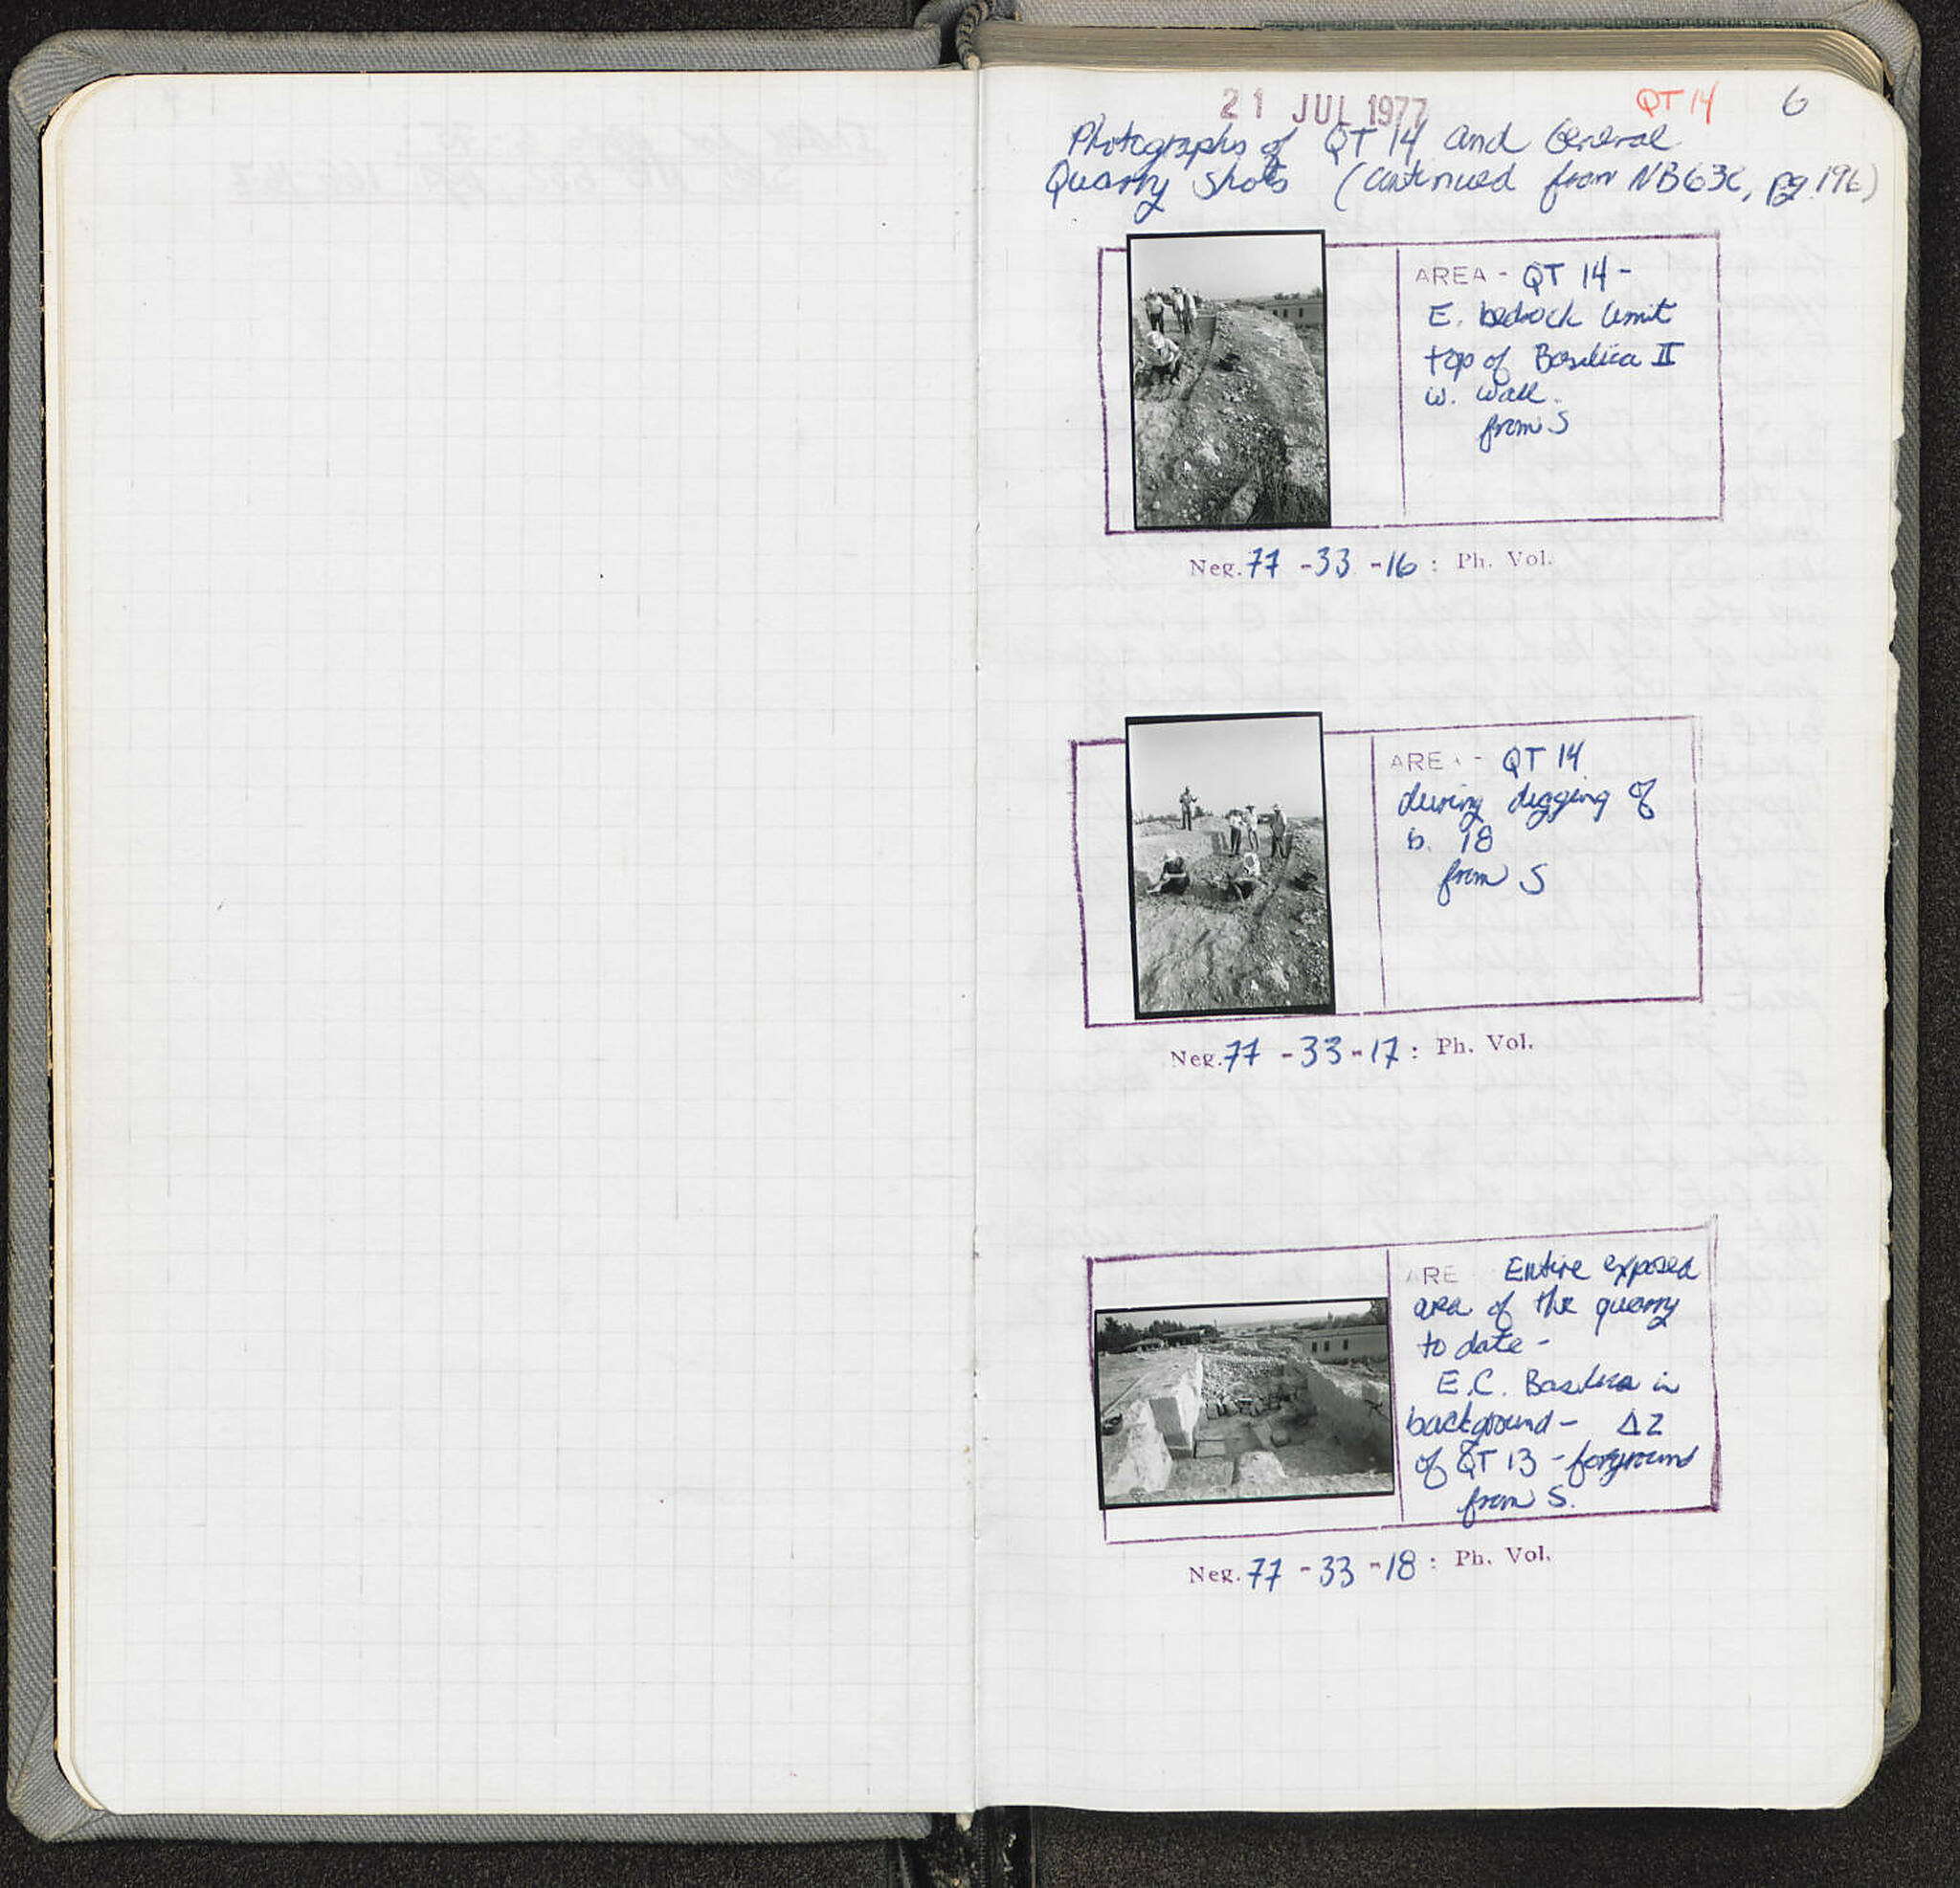 21 JUL 1977
QT 14 6
Photographs of QT 14 and General
Quarry shots (continued from NB 638, pg. 196)
AREA - QT 14 -
E. bedrock limit
top of Basilica II
W. wall.
from S
Neg. 77 - 33 - 16 : Ph. Vol.
ARE - QT 14
during digging of
b. 18
from S
Neg. 77 - 33 - 17 : Ph. Vol.
ARE Entire exposed
area of the quarry
to date -
E.C. Basilica in
background - Δ2
of QT 13 - forground
from S.
Neg. 77 - 33 - 18 : Ph. Vol.